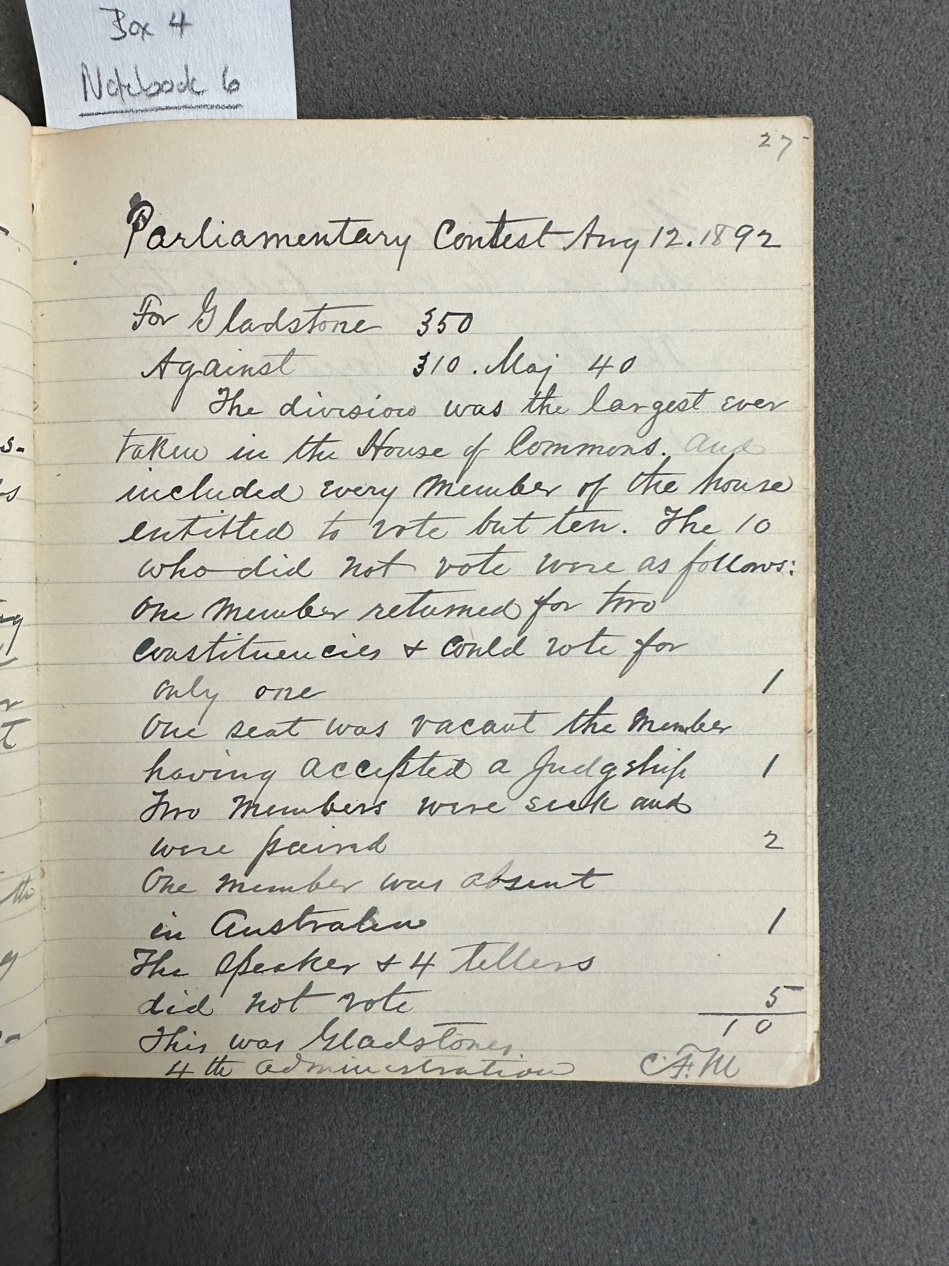 Box 4
Notebook 6
27
Parliamentary Contest Aug 12. 1892
For Gladstone 350
Against 310. Maj 40
The division was the largest ever
taken in the House of Commons. and
included every member of the house
entitled to vote but ten. The 10
who did not vote were as follows:
One member returned for two
constituencies & could vote for
only one 1
One seat was vacant the member
having accepted a Judgship 1
Two members were sick and
were paired 2
One member was absent
in Australia 1
The Speaker & 4 tellers
did not vote 5
10
This was Gladstones
4th administration C.F.M
s-
ng
r
t
the
g